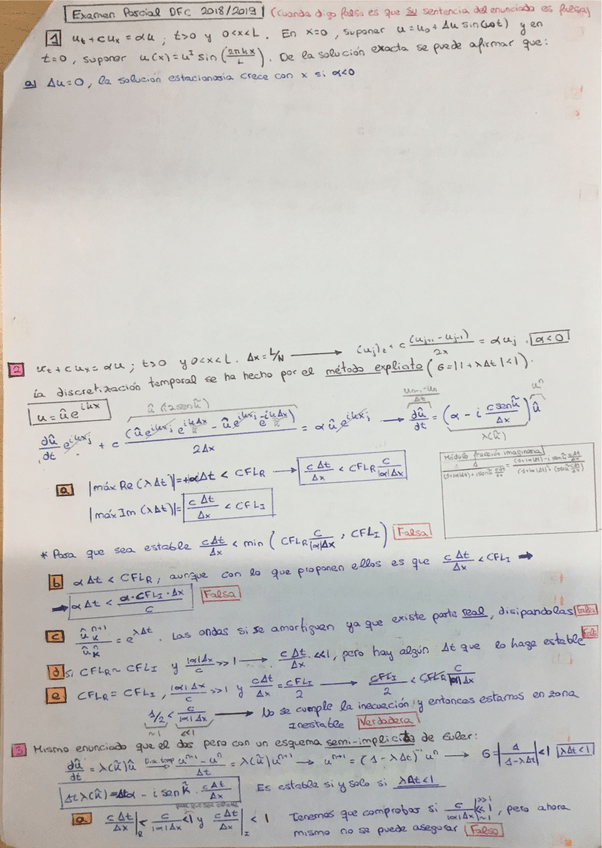 Examen Parcial DFC 2018/2019 (Cuando digo falsa es que su sentencia del enunciado es falsa)
1 u_t + c u_x = αu ; t>0 y 0<x<L. En x=0, suponer u = u_0 + Δu sin(ωt) y en
t=0, suponer u(x) = u² sin(2πkx/L). De la solución exacta se puede afirmar que:
a) Δu=0, la solución estacionaria crece con x si α<0
2 u_t + c u_x = αu ; t>0 y 0<x<L. Δx = L/N → (u_j)_t + c (u_{j+1} - u_{j-1})/2x = αu_j. α<0
la discretización temporal se ha hecho por el método explícito (G=|1+λΔt|<1).
u = û e^{ikx}
dû/dt e^{ikx_j} + c (û e^{ikx_j} e^{ikΔx} - û e^{ikx_j} e^{-ikΔx})/2Δx = αû e^{ikx_j} → dû/dt = (α - i c sen k̃/Δx) û
λ(k̃)
Módulo fracción imaginaria
a |máx Re(λΔt)| = +αΔt < CFL_R → cΔt/Δx < CFL_R c/|α|Δx
|máx Im(λΔt)| = cΔt/Δx < CFL_I
* Para que sea estable cΔt/Δx < min (CFL_R c/|α|Δx , CFL_I) Falsa
b αΔt < CFL_R, aunque con lo que proponen ellos es que cΔt/Δx < CFL_I →
→ αΔt < α·CFL_I·Δx/c Falsa
c û_k^{n+1}/û_k^n = e^{λΔt}. Las ondas si se amortiguen ya que existe parte real, disipandolas Falsa
d si CFL_R ~ CFL_I y |α|Δx/c >> 1 → cΔt/Δx << 1, pero hay algún Δt que lo haga estable Falsa
e CFL_R = CFL_I, |α|Δx/c >> 1 y cΔt/Δx = CFL_I/2 → CFL_I/2 < CFL_R c/|α|Δx
1/2 < c/|α|Δx → No se cumple la inecuación y entonces estamos en zona
~1 <<1 inestable Verdadera
3 Mismo enunciado que el dos pero con un esquema semi-implicito de Euler:
dû/dt = λ(k̃)û → u^{n+1} - u^n/Δt = λ(k̃)u^{n+1} → u^{n+1} = (1-λΔt)^{-1} u^n G = |1/1-λΔt| < 1 λΔt<1
Δtλ(k̃) = Δtα - i sen k̃ · cΔt/Δx Es estable si y solo si λΔt<1
a cΔt/Δx|_R < c/|α|Δx < 1 y cΔt/Δx|_I < 1 Tenemos que comprobar si c/|α|Δx >>1 <<1 ~1, pero ahora
mismo no se puede asegurar Falsa